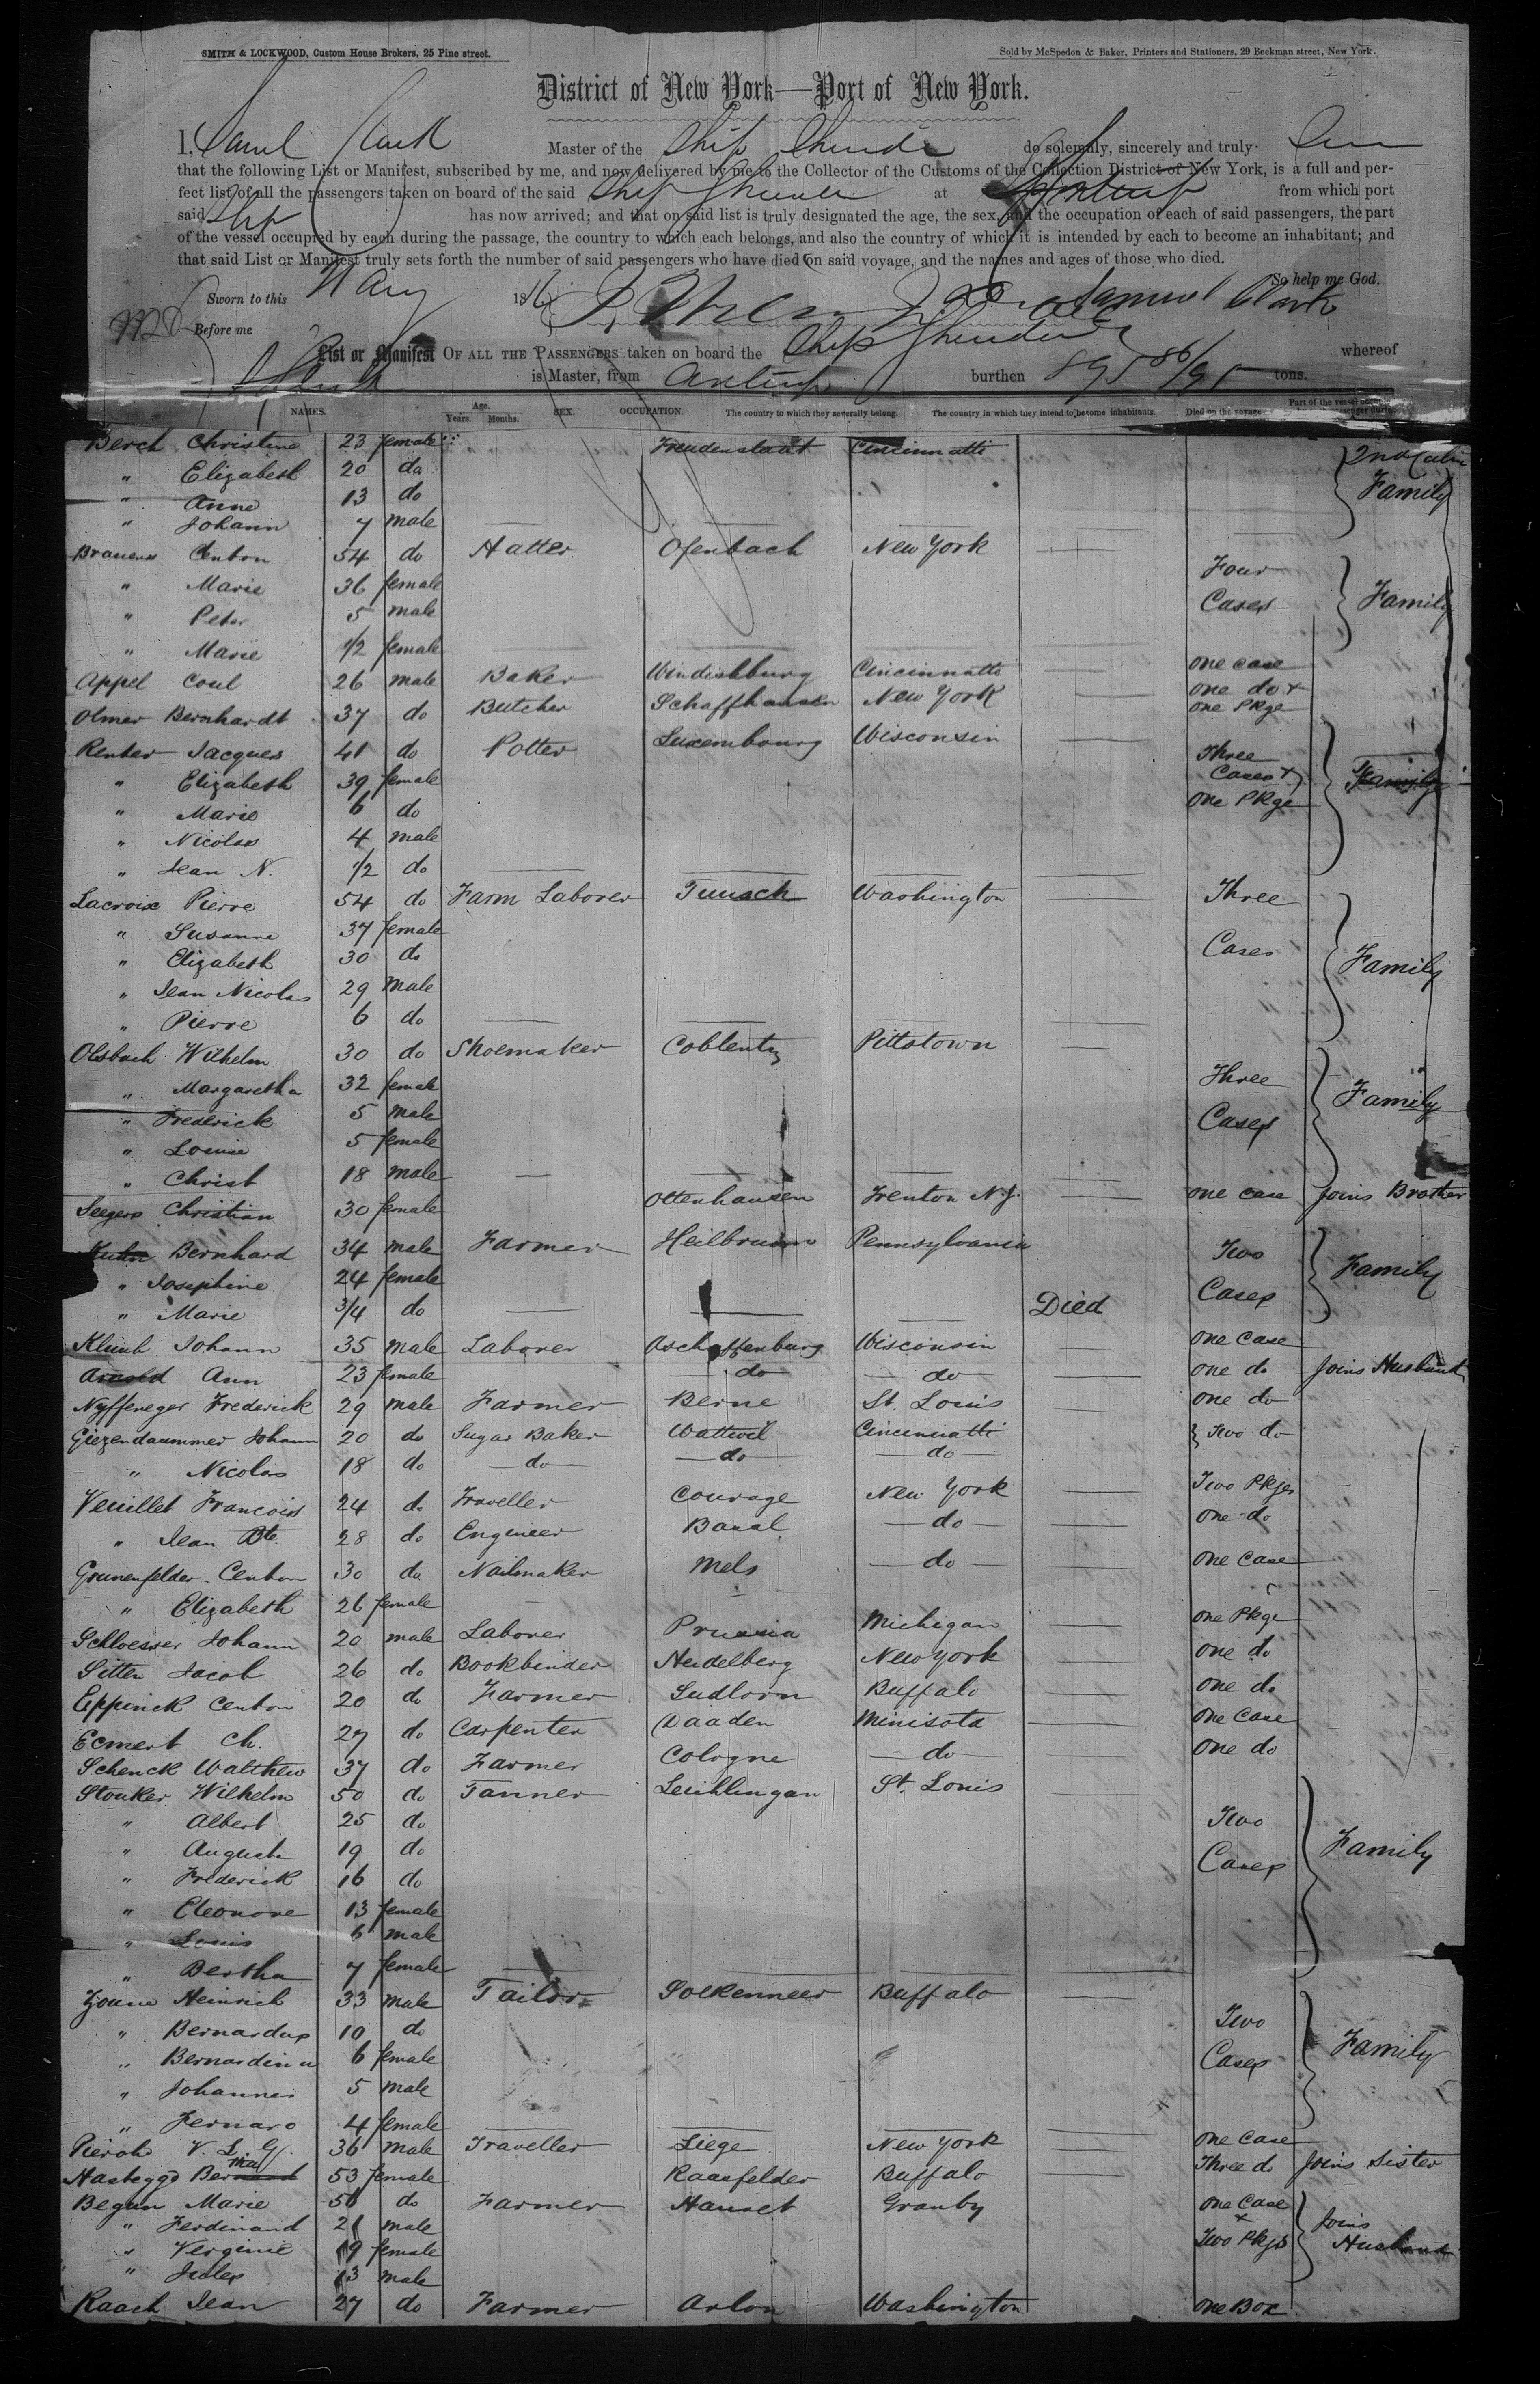 SMITH & LOCKWOOD, Custom House Brokers, 25 Pine street. Sold by McSpedon & Baker, Printers and Stationers, 29 Beekman street, New York.
District of New York—Port of New York.
I, Saml Clark Master of the Ship do solemnly, sincerely and truly
that the following List or Manifest, subscribed by me, and now delivered by me to the Collector of the Customs of the Collection District of New York, is a full and per-
fect list of all the passengers taken on board of the said Ship at Antwerp from which port
said Ship has now arrived; and that on said list is truly designated the age, the sex, and the occupation of each of said passengers, the part
of the vessel occupied by each during the passage, the country to which each belongs, and also the country of which it is intended by each to become an inhabitant; and
that said List or Manifest truly sets forth the number of said passengers who have died on said voyage, and the names and ages of those who died.
So help me God.
Sworn to this May 186 Samuel Clark
Before me
List or Manifest OF ALL THE PASSENGERS taken on board the Ship whereof
is Master, from Antwerp burthen 895 86/95 tons.
NAMES. Age. Years. Months. SEX. OCCUPATION. The country to which they severally belong. The country in which they intend to become inhabitants. Died on the voyage. Part of the vessel
Berch Christine 23 female Freudenstadt Cincinnatti 2nd Cabin
" Elizabeth 20 do Family
" Anne 13 do
" Johann 7 male
Brauens Anton 54 do Hatter Ofenbach New York Four
" Marie 36 female Cases Family
" Peter 5 male
" Marie 1/2 female
Appel Carl 26 male Baker Windishburg Cincinnatti one case
Olmer Bernhardt 37 do Butcher Schaffhausen New York one do + one Pkge
Renter Jacques 41 do Potter Luxembourg Wisconsin Three
" Elizabeth 39 female Cases + Family
" Marie 6 do one Pkge
" Nicolas 4 male
" Jean N. 1/2 do
Lacroix Pierre 54 do Farm Laborer Washington Three
" Susanne 37 female
" Elizabeth 30 do Cases Family
" Jean Nicolas 29 male
" Pierre 6 do
Olsbach Wilhelm 30 do Shoemaker Coblentz Pittstown
" Margaretha 32 female Three Family
" Frederick 5 male Cases
" Louise 5 female
" Christ 18 male
Seegers Christian 30 female Ottenhausen Trenton N.J. one case Joins Brother
Kuhn Bernhard 34 male Farmer Heilbrunn Pennsylvania Two
" Josephine 24 female Cases Family
" Marie 3/4 do Died
Klimb Johann 35 male Laborer Aschaffenburg Wisconsin one case
Arnold Ann 23 female do do one do Joins Husband
Nyffeneger Frederick 29 male Farmer Berne St. Louis one do
Giezendaummer Johann 20 do Sugar Baker Wattwil Cincinnatti Two do
" Nicolas 18 do do do do
Veuillet Francois 24 do Traveller Courage New York Two Pkges
" Jean Bte. 28 do Engineer Basal do one do
Grunenfelder Anton 30 do Nailmaker Mels do one case
" Elizabeth 26 female
Schloesser Johann 20 male Laborer Prussia Michigan one Pkge
Sitten Jacob 26 do Bookbinder Heidelberg New York one do
Eppinck Anton 20 do Farmer Sudlorn Buffalo one do
Ecmert Ch. 27 do Carpenter Daaden Minisota one Case
Schenck Walthew 37 do Farmer Cologne do one do
Stouker Wilhelm 50 do Tanner Leichlingan St. Louis
" Albert 25 do Two
" August 19 do Cases Family
" Frederick 16 do
" Eleonore 13 female
" Louis 6 male
" Bertha 7 female
Zoune Heinrich 33 male Tailor Soekenneer Buffalo
" Bernardus 10 do Two
" Bernardina 6 female Cases Family
" Johannes 5 male
" 4 female
Pierot V. L. G. 36 male Traveller Liege New York one case
Hasteggo 53 female Raasfelder Buffalo Three do Joins Sister
Begun Marie 50 do Farmer Hauset Granby one Case
" Ferdinand 21 male + Joins
" Verginie 19 female Two Pkges Husband
" Jules 13 male
Raach Jean 27 do Farmer Arlon Washington one Box